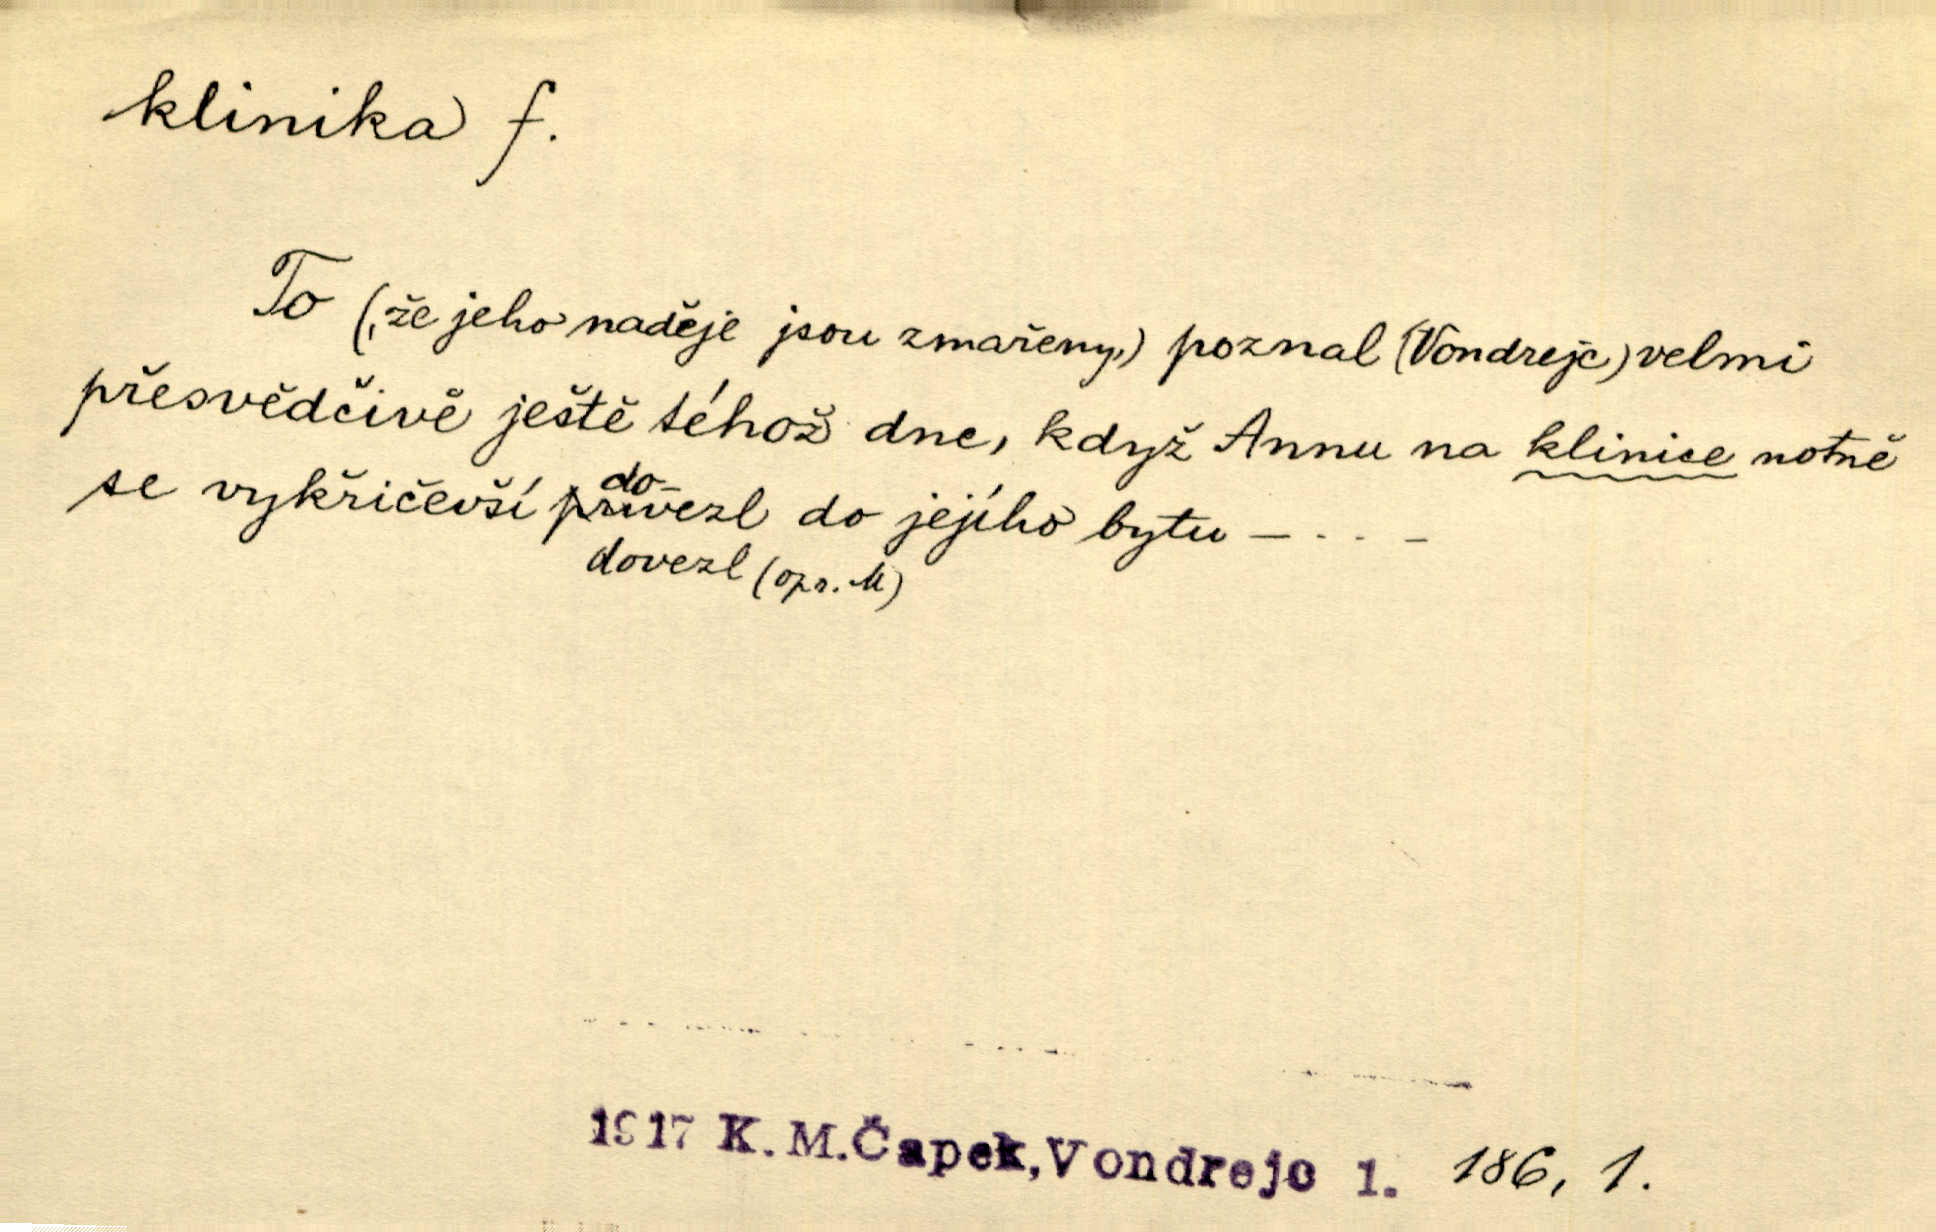 klinika f.
To (, že jeho naděje jsou zmařeny,) poznal (Vondrejc) velmi
přesvědčivě ještě téhož dne, když Annu na klinice notně
do-
se vykřičevší přivezl do jejího bytu – . . . –
dovezl (opr. M)
1917 K. M. Čapek, Vondrejc 1. 186, 1.